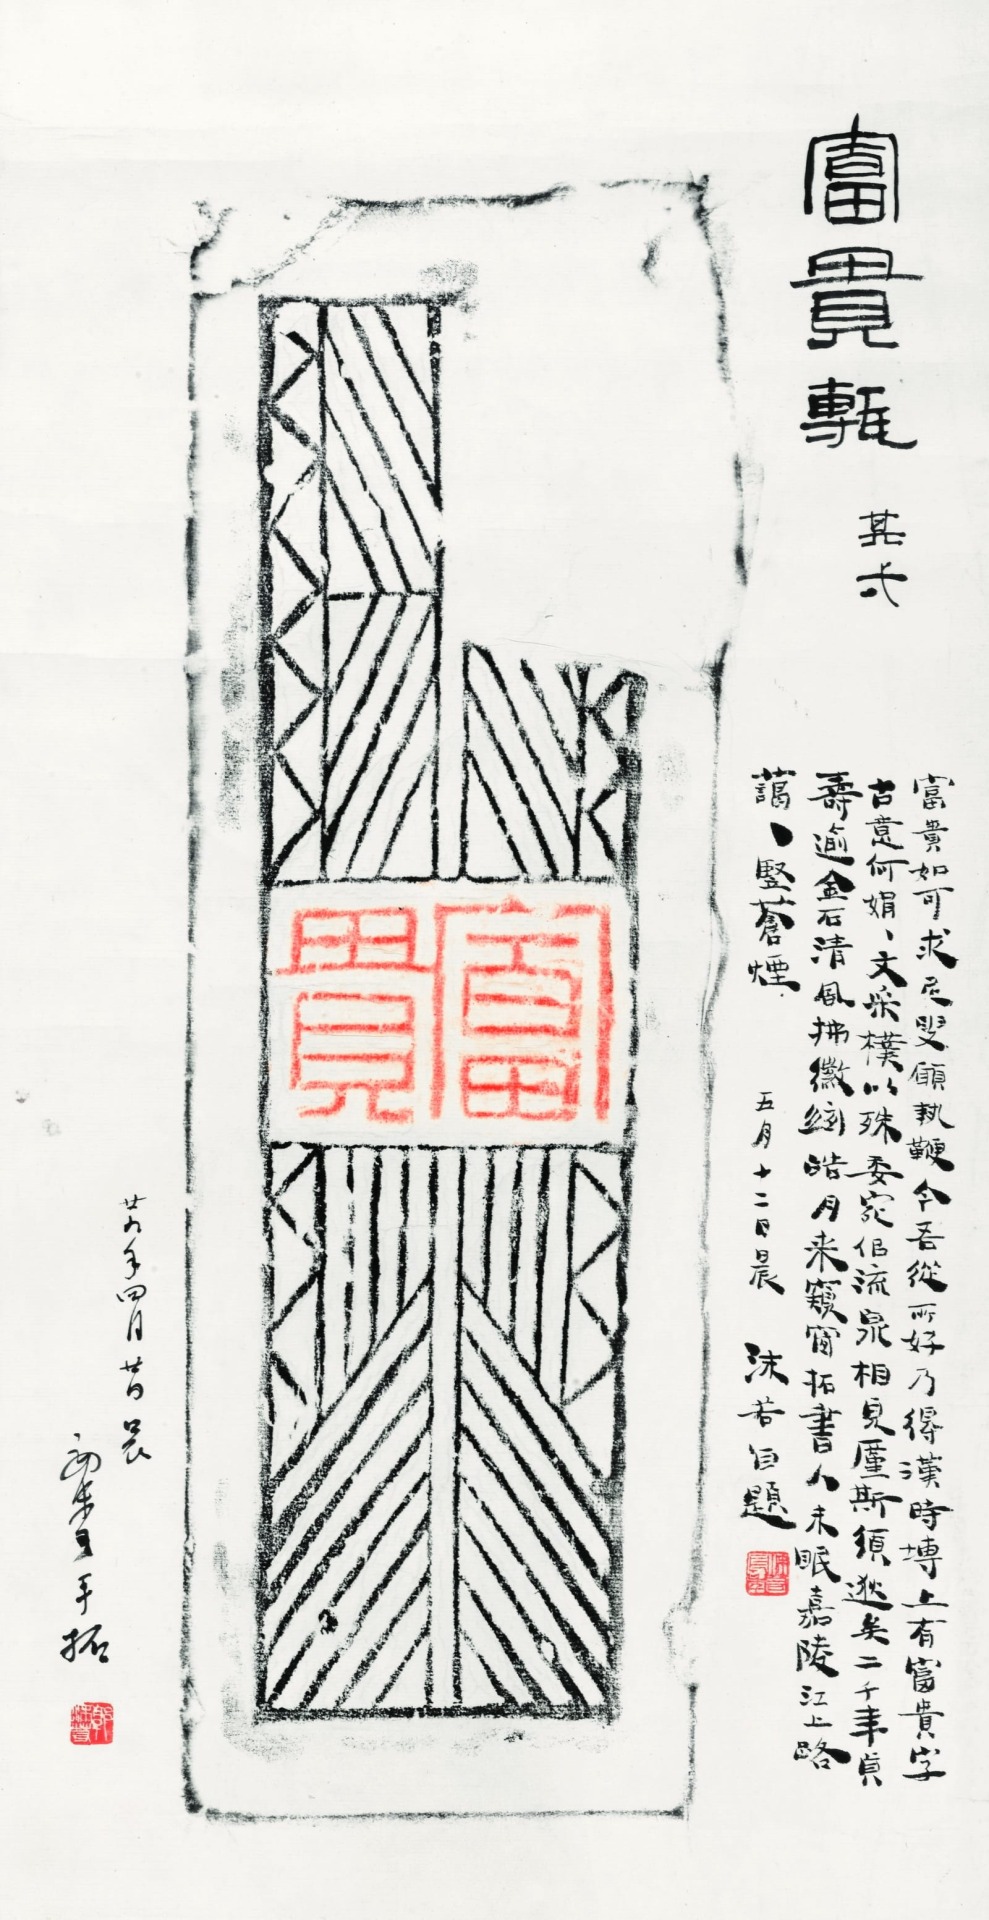 富貴甎
其弍
富貴如可求尼叟願執鞭今吾從所好乃得漢時塼上有富貴字
古意何娟、文采樸以殊委宛佀流泉相見廑斯須逖矣二千年貞
壽逾金石清風拂徽絃皓月来窺窗拓書人未眠嘉陵江上路
藹、豎蒼煙
五月十二日晨 沫若自題
富貴
廿九年四月廿日晨
手拓